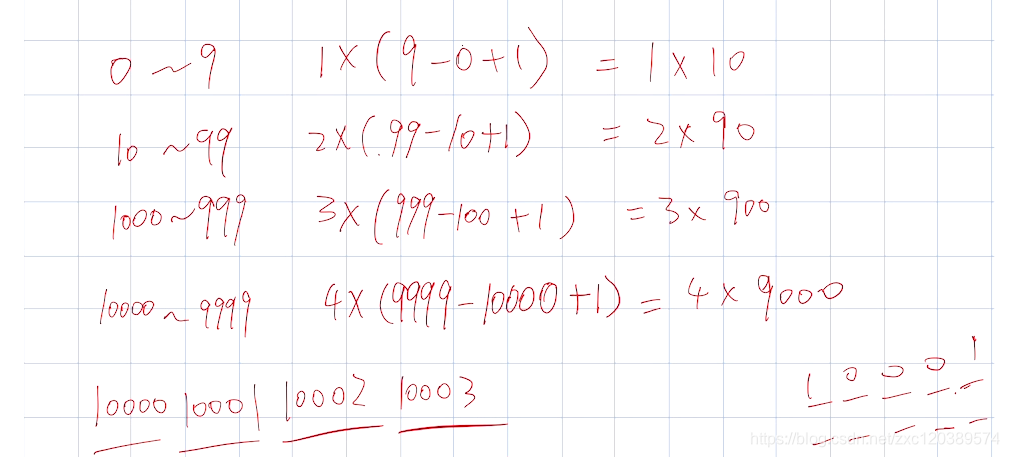 0 ~ 9 1 × (9 - 0 + 1) = 1 × 10
10 ~ 99 2 × (99 - 10 + 1) = 2 × 90
1000 ~ 999 3 × (999 - 100 + 1) = 3 × 900
10000 ~ 9999 4 × (9999 - 10000 + 1) = 4 × 9000
10000 10001 10002 10003
1 0 0 0 1
https://blog.csdn.net/zxc120389574